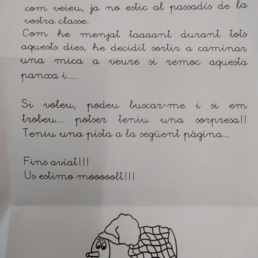 com veieu, ja no estic al passadís de la
vostra classe.
Com he menjat taaaant durant tots
aquests dies, he decidit sortir a caminar
una mica a veure si remoc aquesta
panxa i....
Si voleu, podeu buscar-me i si em
trobeu... potser teniu una sorpresa!!
Teniu una pista a la següent pàgina...
Fins aviat!!!
Us estimo mooooolt!!!